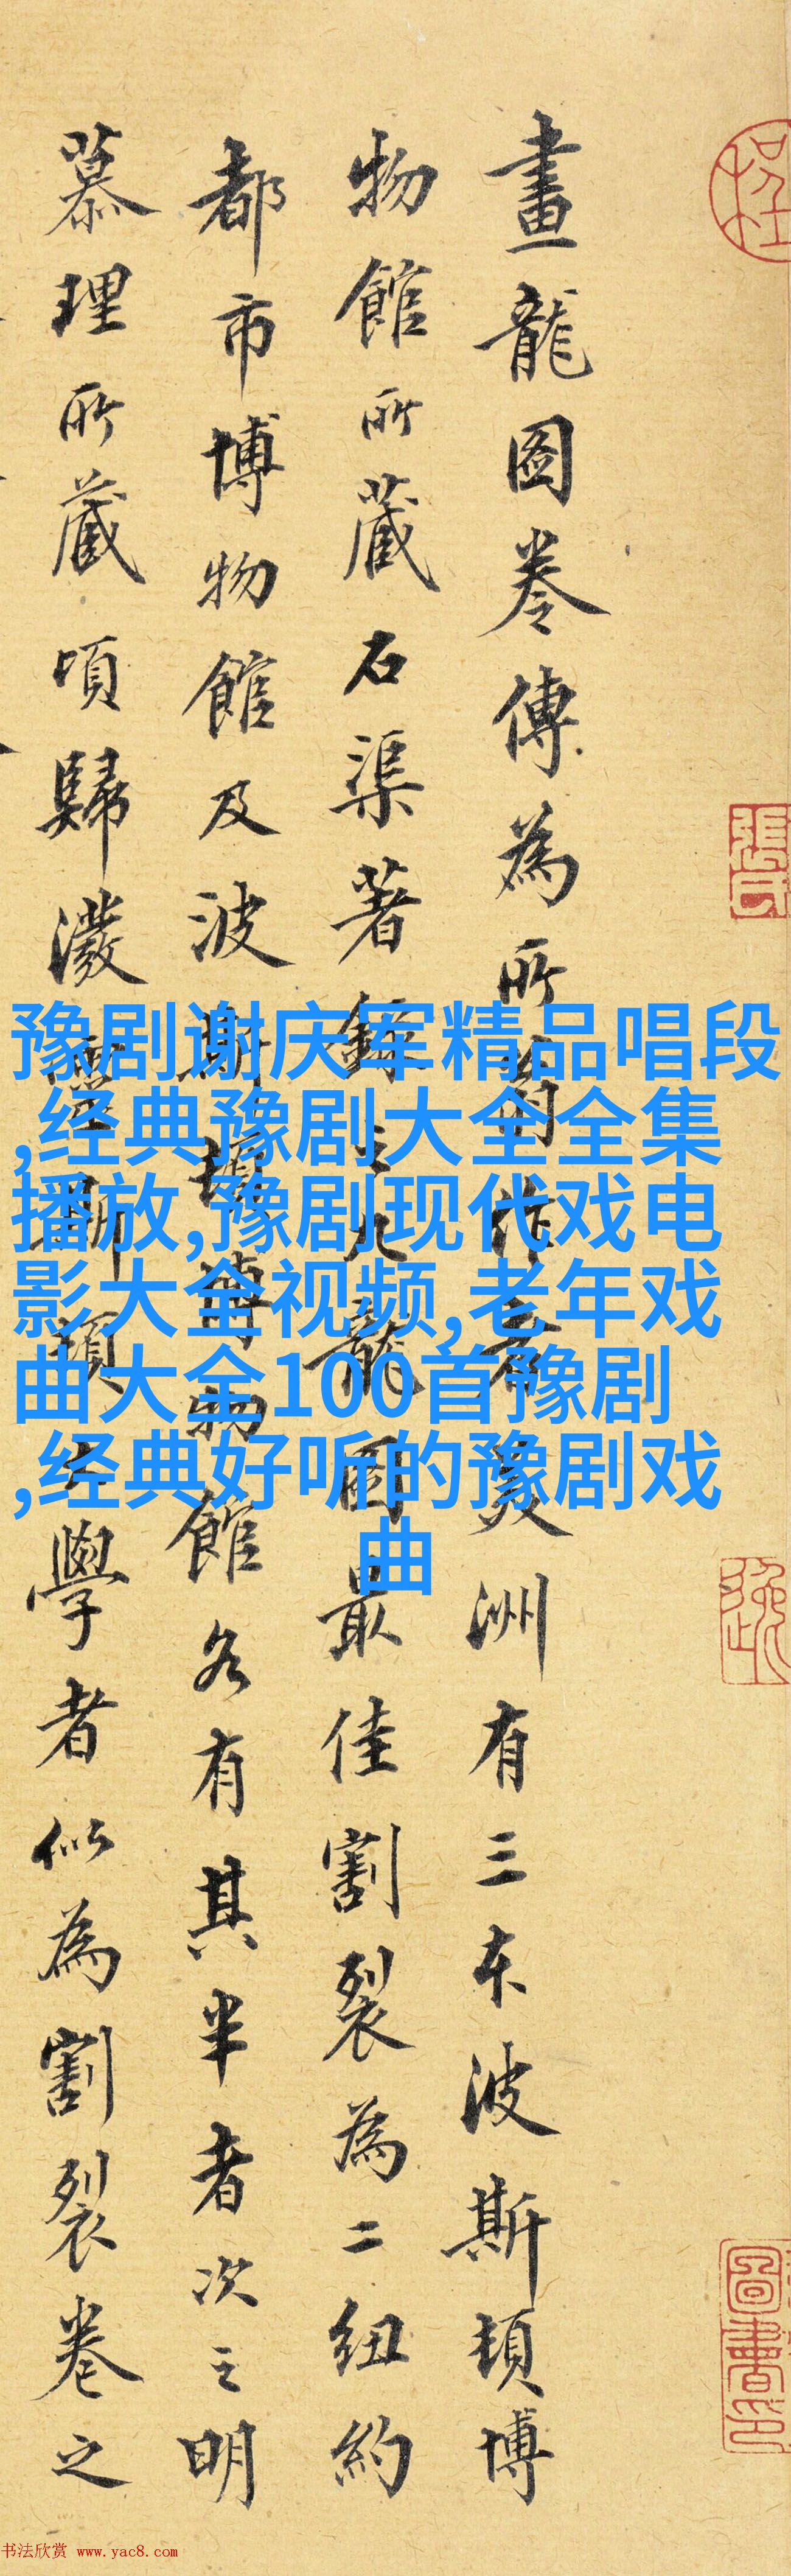 畫龍圖卷傳為所翁作者美洲有三本波斯頓博
物館所藏石渠著錄之九龍圖最佳割裂為二紐約
都市博物館及波斯頓博物館各有其半者次之明
慕理所藏頃歸潑靈斯頓大學者似為割裂卷之
豫剧谢庆军精品唱段
,经典豫剧大全全集
播放,豫剧现代戏电
影大全视频,老年戏
曲大全100首豫剧
,经典好听的豫剧戏
曲
張氏
書法欣赏 www.yac8.com